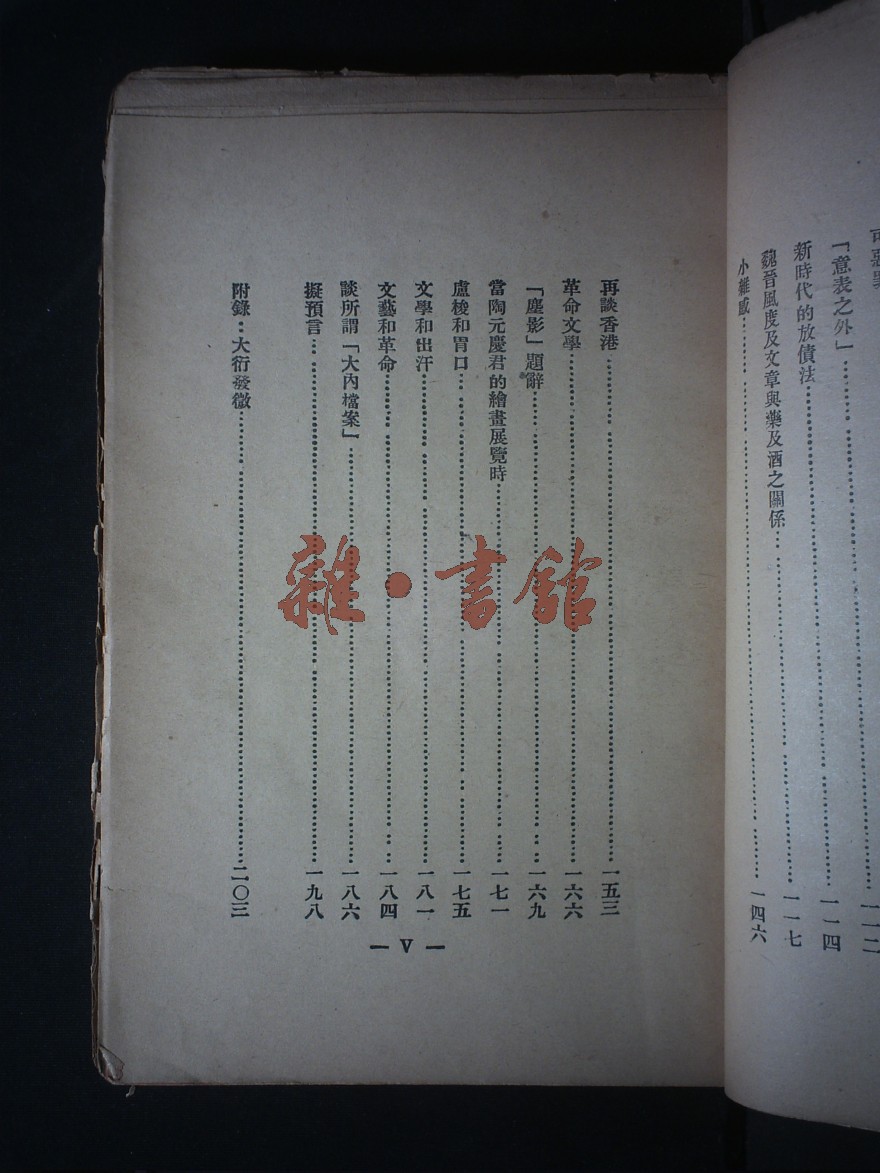 「意表之外」……一一二
新時代的放債法……一一四
魏晉風度及文章與藥及酒之關係……一一七
小雜感……一四六
再談香港……一五三
革命文學……一六六
「塵影」題辭……一六九
當陶元慶君的繪畫展覽時……一七一
盧梭和胃口……一七五
文學和出汗……一八一
文藝和革命……一八四
談所謂「大內檔案」……一八六
擬預言……一九八
附錄：大衍發微……二〇三
— V —
雜·書館